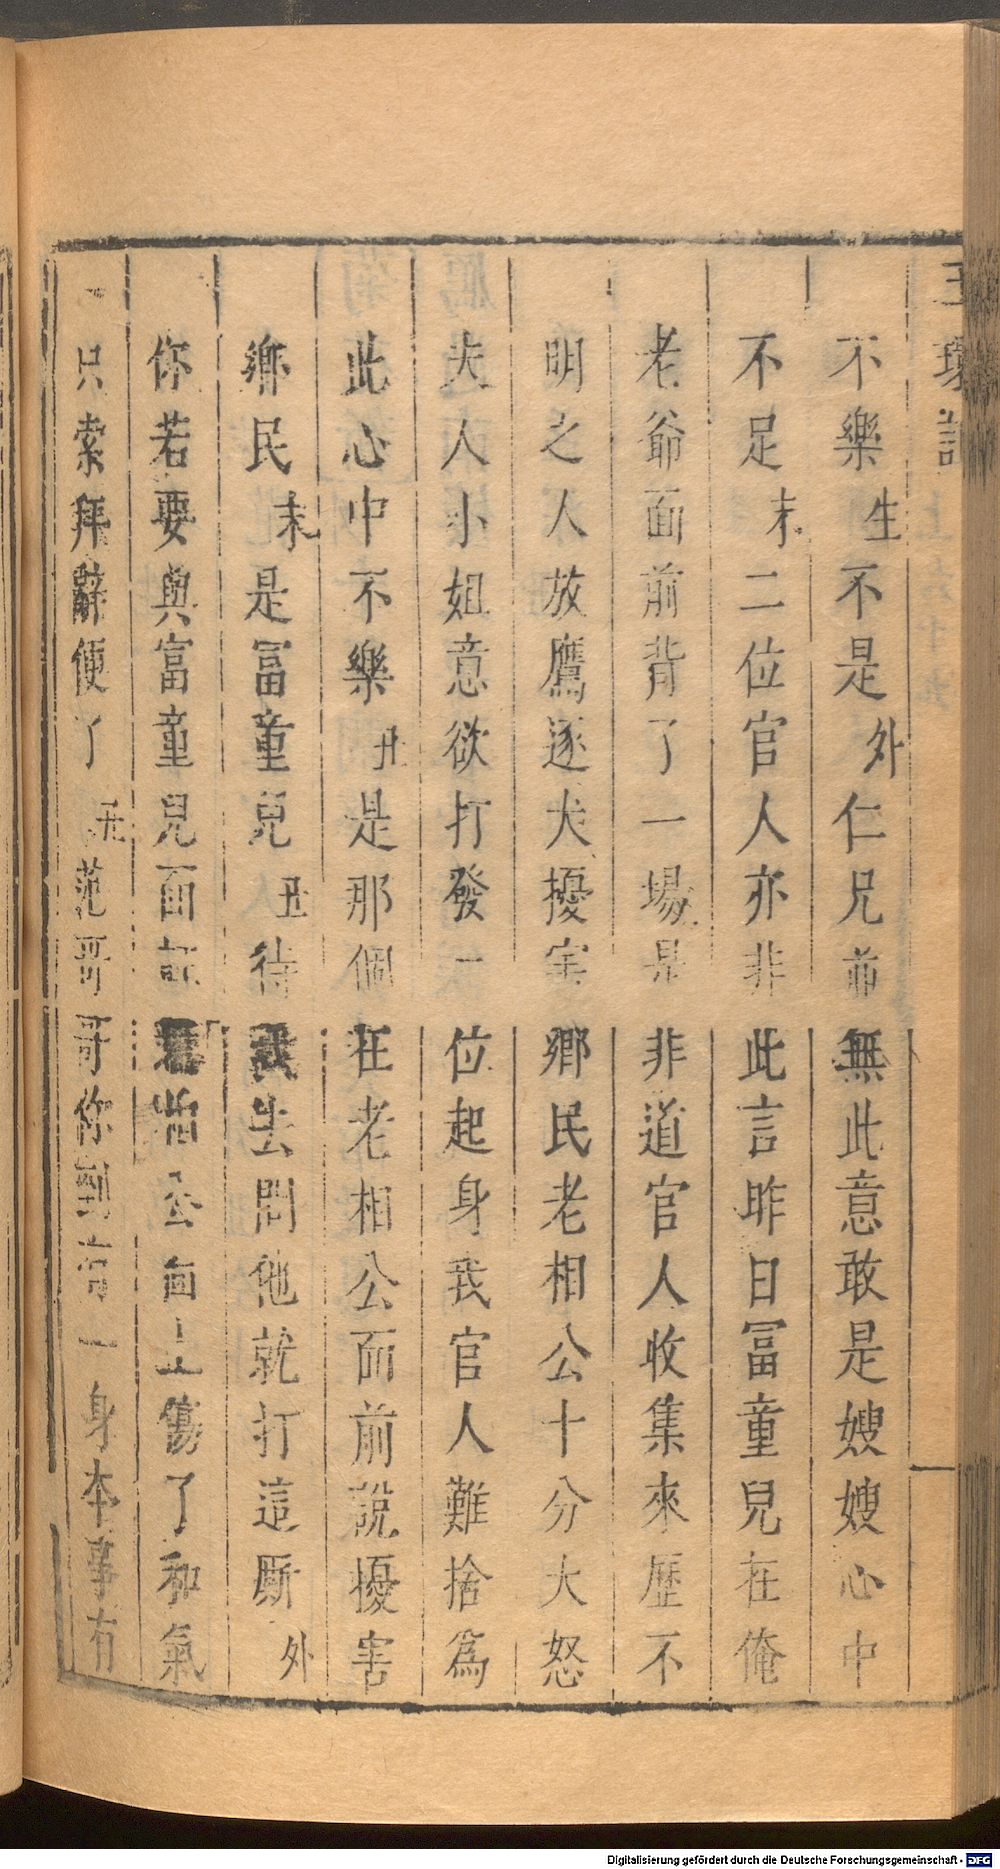 不樂生不是外仁兄並無此意敢是嫂嫂心中
不足末二位官人亦非此言昨日冨童兒在俺
老爺面前背了一場是非道官人收集來歷不
明之人放鷹逐犬擾害鄉民老相公十分大怒
夫人小姐意欲打發一位起身我官人難捨爲
此心中不樂丑是那個在老相公面前說擾害
鄉民末是冨童兒丑待我去問他就打這厮外
你若要與富童兒面 公面上傷了和氣
只索拜辭便了丑范哥哥你到 一身本事有
Digitalisierung gefördert durch die Deutsche Forschungsgemeinschaft - DFG